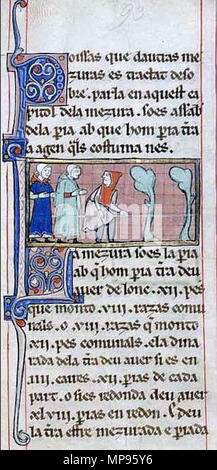 93
Poissas que dauctas me
zuras es tractat deso
bre. parla en aquest ca
pitol dela mezura. soes assab
dela pia ab que hom pia tia
a agen qls costuma nes.
La mezura soes la pia
ab q hom pia tia deu
auer de lonc .xii. pes
que monto .viii. razas comu
nals. o .viii. razas q monto
.xii. pes comunals. ela dina
rada dela tia deu auer si es en
caires .xii. pias de cada
part. o si es redonda deu auer
xlviii. pias en redon. Si deu
la tia estre mezurada e piada
alamy
Image ID: MP95Y6
www.alamy.com